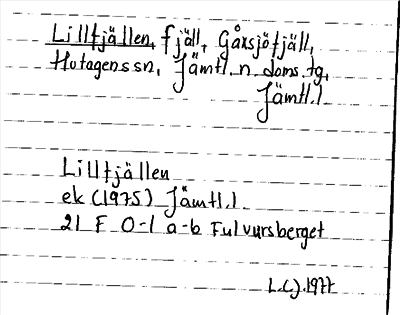 Lillfjällen, fjäll, Gåxsjöfjäll,
Hotagens sn, Jämtl. n. doms. tg,
Jämtl. l
Lillfjällen
ek (1975) Jämtl. l
21 F 0-1 a-b Fulvursberget
L.J. 1977